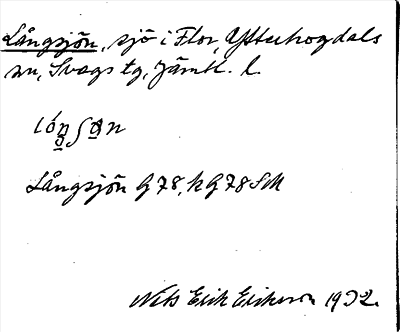 Långsjön, sjö i Flor, Ytterhogdals
sn, Svegs tg, Jämtl. l.
Långsjön G78, K G78 SM
Nils Erik Erikson 1932.